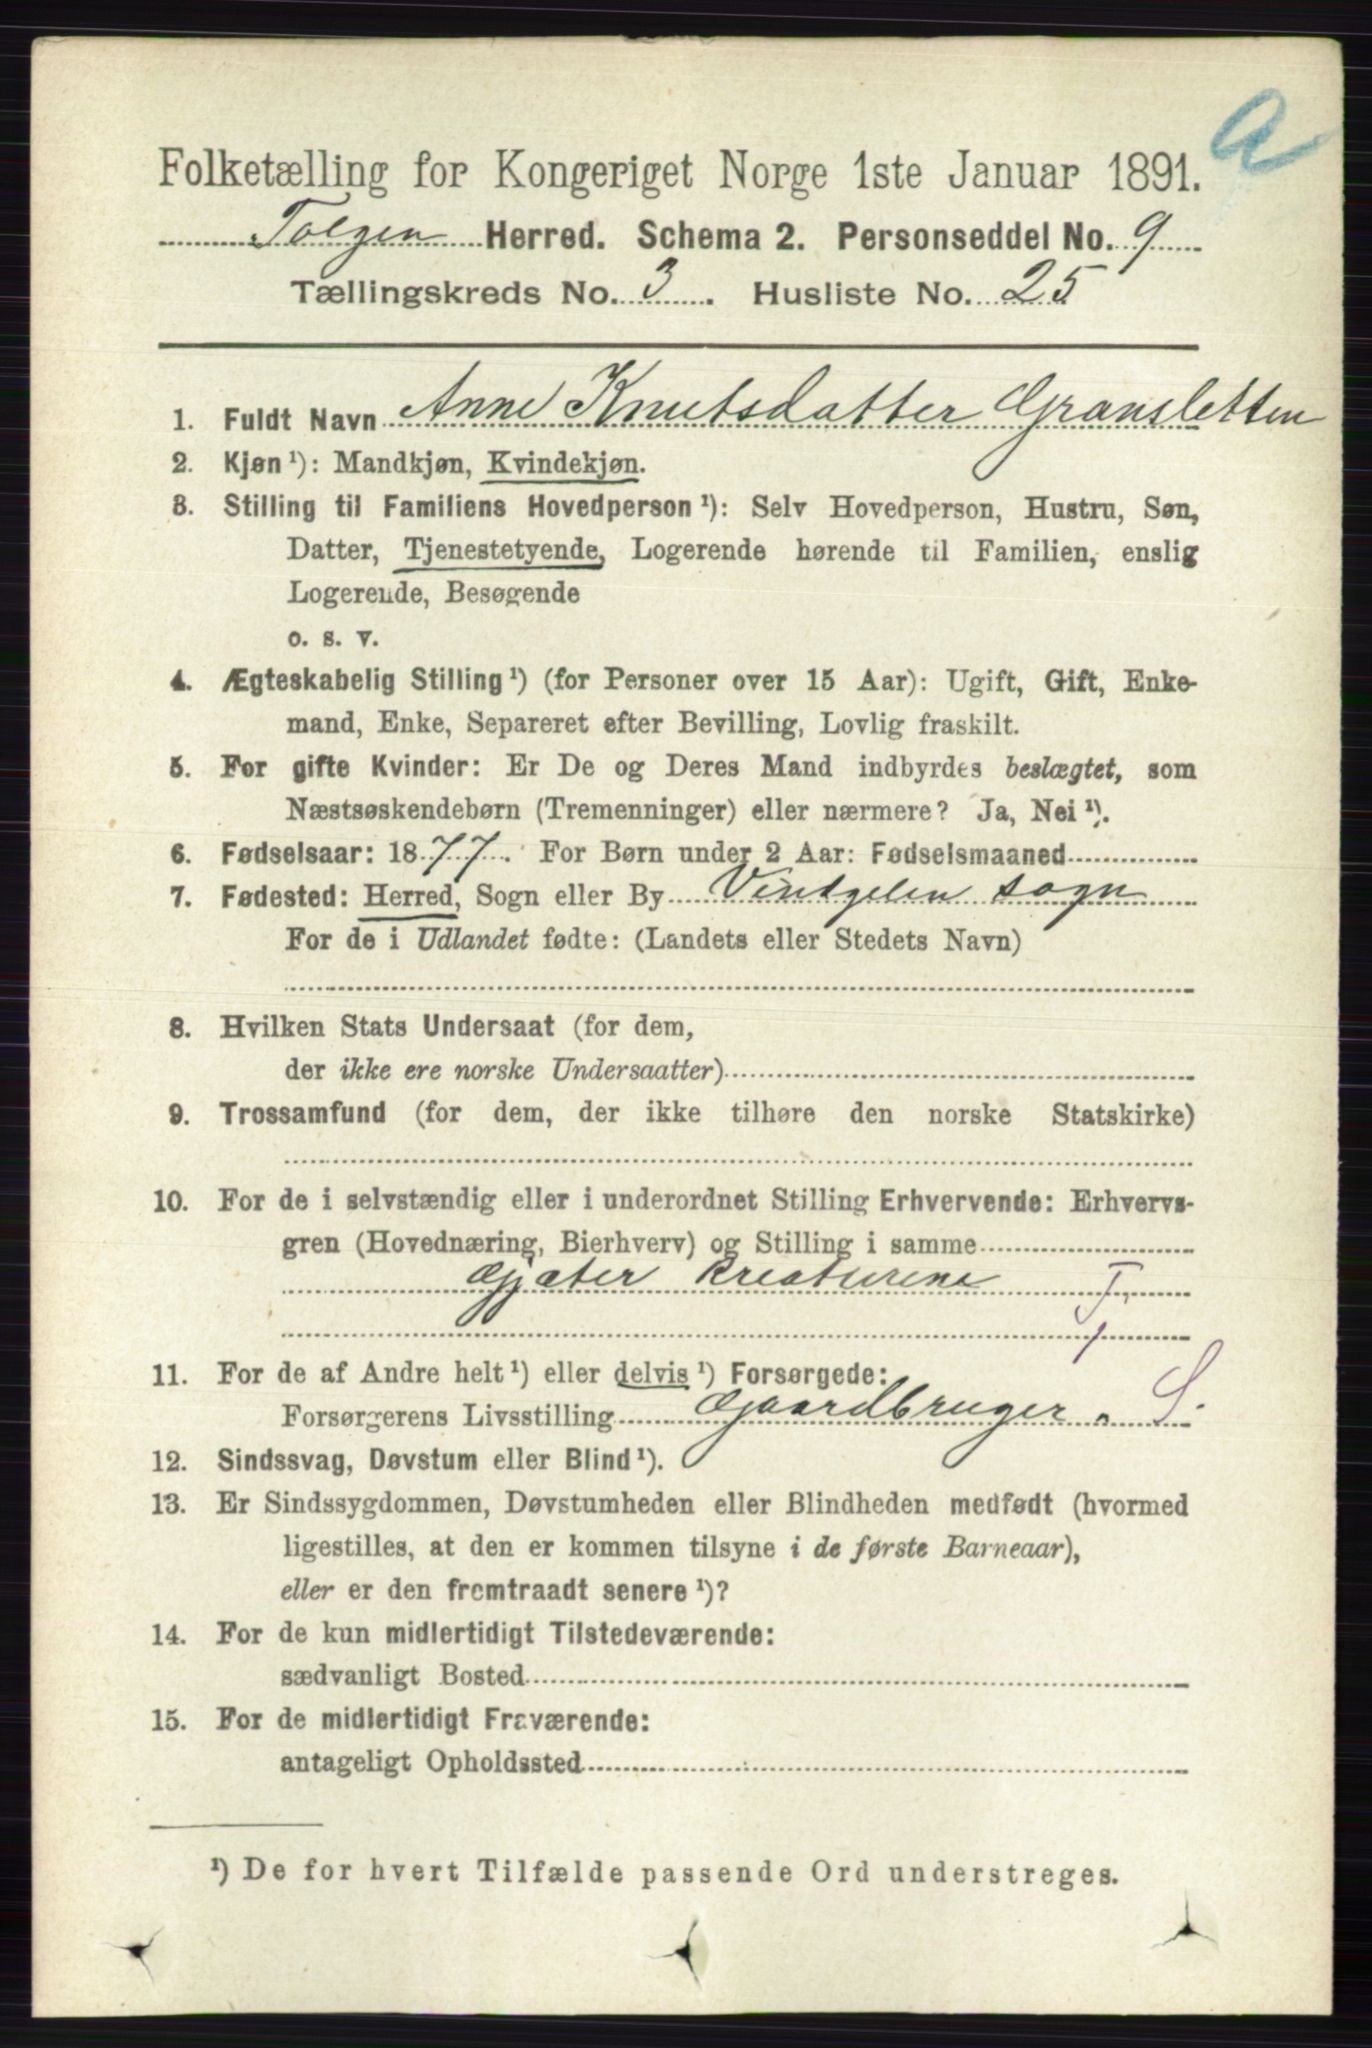 a
Folketælling for Kongeriget Norge 1ste Januar 1891.
Tolgen Herred. Schema 2. Personseddel No. 9
Tællingskreds No. 3. Husliste No. 25
1. Fuldt Navn Anne Knutsdatter Gransletten
2. Kjøn¹): Mandkjøn, Kvindekjøn.
3. Stilling til Familiens Hovedperson¹): Selv Hovedperson, Hustru, Søn,
Datter, Tjenestetyende, Logerende hørende til Familien, enslig
Logerende, Besøgende
o. s. v.
4. Ægteskabelig Stilling¹) (for Personer over 15 Aar): Ugift, Gift, Enke-
mand, Enke, Separeret efter Bevilling, Lovlig fraskilt.
5. For gifte Kvinder: Er De og Deres Mand indbyrdes beslægtet, som
Næstsøskendebørn (Tremenninger) eller nærmere? Ja, Nei¹).
6. Fødselsaar: 1877. For Børn under 2 Aar: Fødselsmaaned
7. Fødested: Herred, Sogn eller By Vintgelen sogn
For de i Udlandet fødte: (Landets eller Stedets Navn)
8. Hvilken Stats Undersaat (for dem,
der ikke ere norske Undersaatter)
9. Trossamfund (for dem, der ikke tilhøre den norske Statskirke)
10. For de i selvstændig eller i underordnet Stilling Erhvervende: Erhvervs-
gren (Hovednæring, Bierhverv) og Stilling i samme
Gjæter kreaturene T,
11. For de af Andre helt¹) eller delvis¹) Forsørgede:
Forsørgerens Livsstilling Gaardbruger. S.
12. Sindssvag, Døvstum eller Blind¹).
13. Er Sindssygdommen, Døvstumheden eller Blindheden medfødt (hvormed
ligestilles, at den er kommen tilsyne i de første Barneaar),
eller er den fremtraadt senere¹)?
14. For de kun midlertidigt Tilstedeværende:
sædvanligt Bosted
15. For de midlertidigt Fraværende:
antageligt Opholdssted
¹) De for hvert Tilfælde passende Ord understreges.